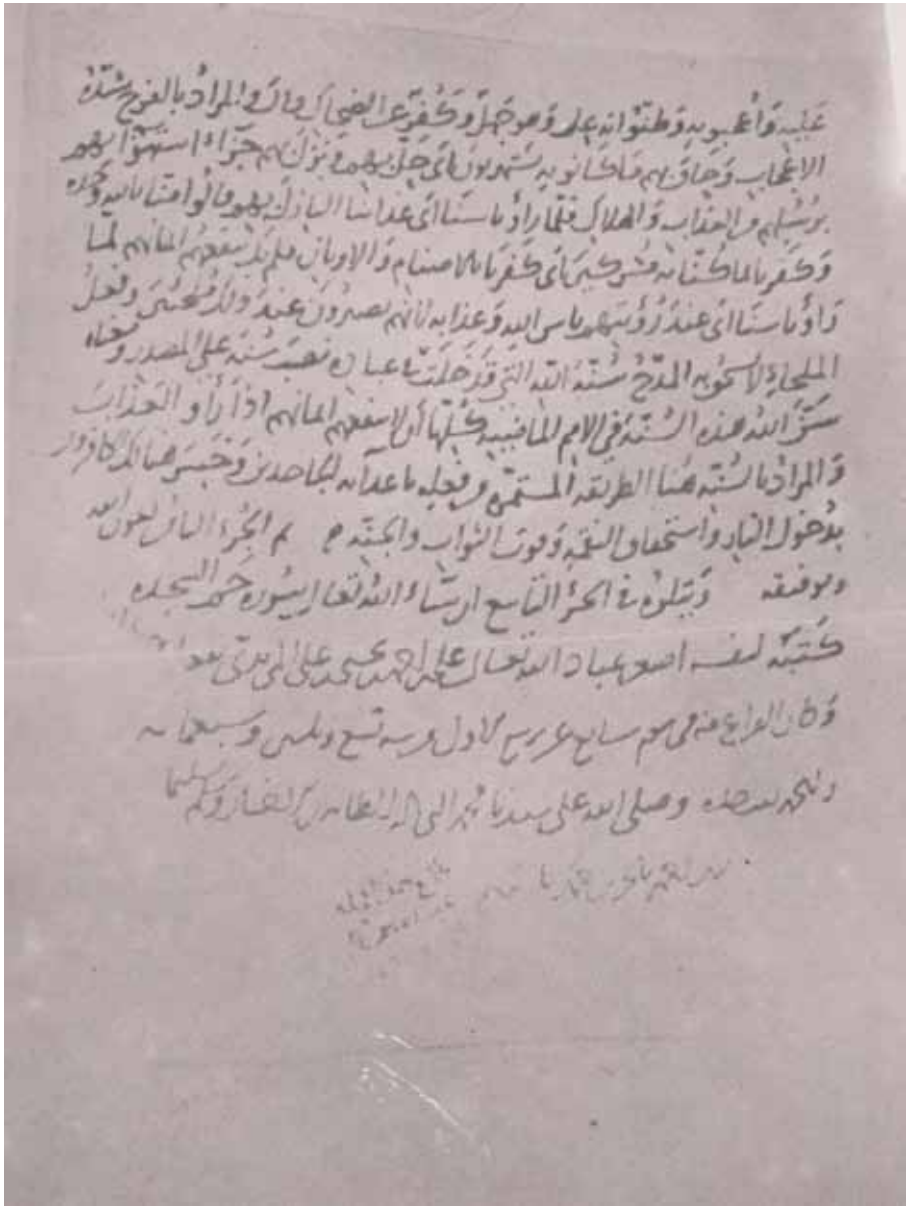 عليه وَأعجبوا به وَظنّوا انه علم وَهو جهل وَكُفر عن الضحاك قال والمراد بالفرح شدّة
الاعجاب وَحاق بهم مَا كانو به يَستهزءون اَي حلّ بهم ونزل بهم جَزَاء استهزَائهم
برُسُلهم من العذاب وَالهلاك فلمّا راَوْ باسَنَا اَى عذابنا النازل بهم قالوا امنّا بالله وَحده
وَكَفرنا بما كُنّا به مشركين اَى كفرنا بالاصنام وَالاوثان فلم يك ينفعهم ايمانهم لمّا
رَاوْ باسَنَا اى عندَ رُؤيتهم باس الله وَعذابه لانهم يصيرُون عندَ ذلك مُلجئين وَفعلُ
الملجاء لا يستحق به المدحُ سُنّة الله التي قدْ خلت في عباده نصبَ سُنة على المصدر ومعناه
سَنّ الله هذه السُنّة في الامم الماضية كلّها أن لا ينفعهم ايمانهم اذا رَأو العَذابَ
وَالمرادُ بالسُنّة هُنا الطريقة المستمرّة من فعله باعدآئه الجاحدين وَخسِرَ هنالك الكافرون
بدُخول النار واستحقاق النقمة وَفوت الثواب والجنّة تم الجُزء الثامن بعون الله
وتوفيقه وَيتلوُه في الجزء التاسع ان شاء الله تعالى سُورة حم السجده
كتبه لنفسه اضعف عباد الله تعالى على بن احمد
وَكان الفراغ منه في يوم سابع عشر ربيع الاول من سنه تسع وثلثين وسبعمائه
وصلى الله على سيدنا محمد النبي واله الطاهرين وَسلم تسليما